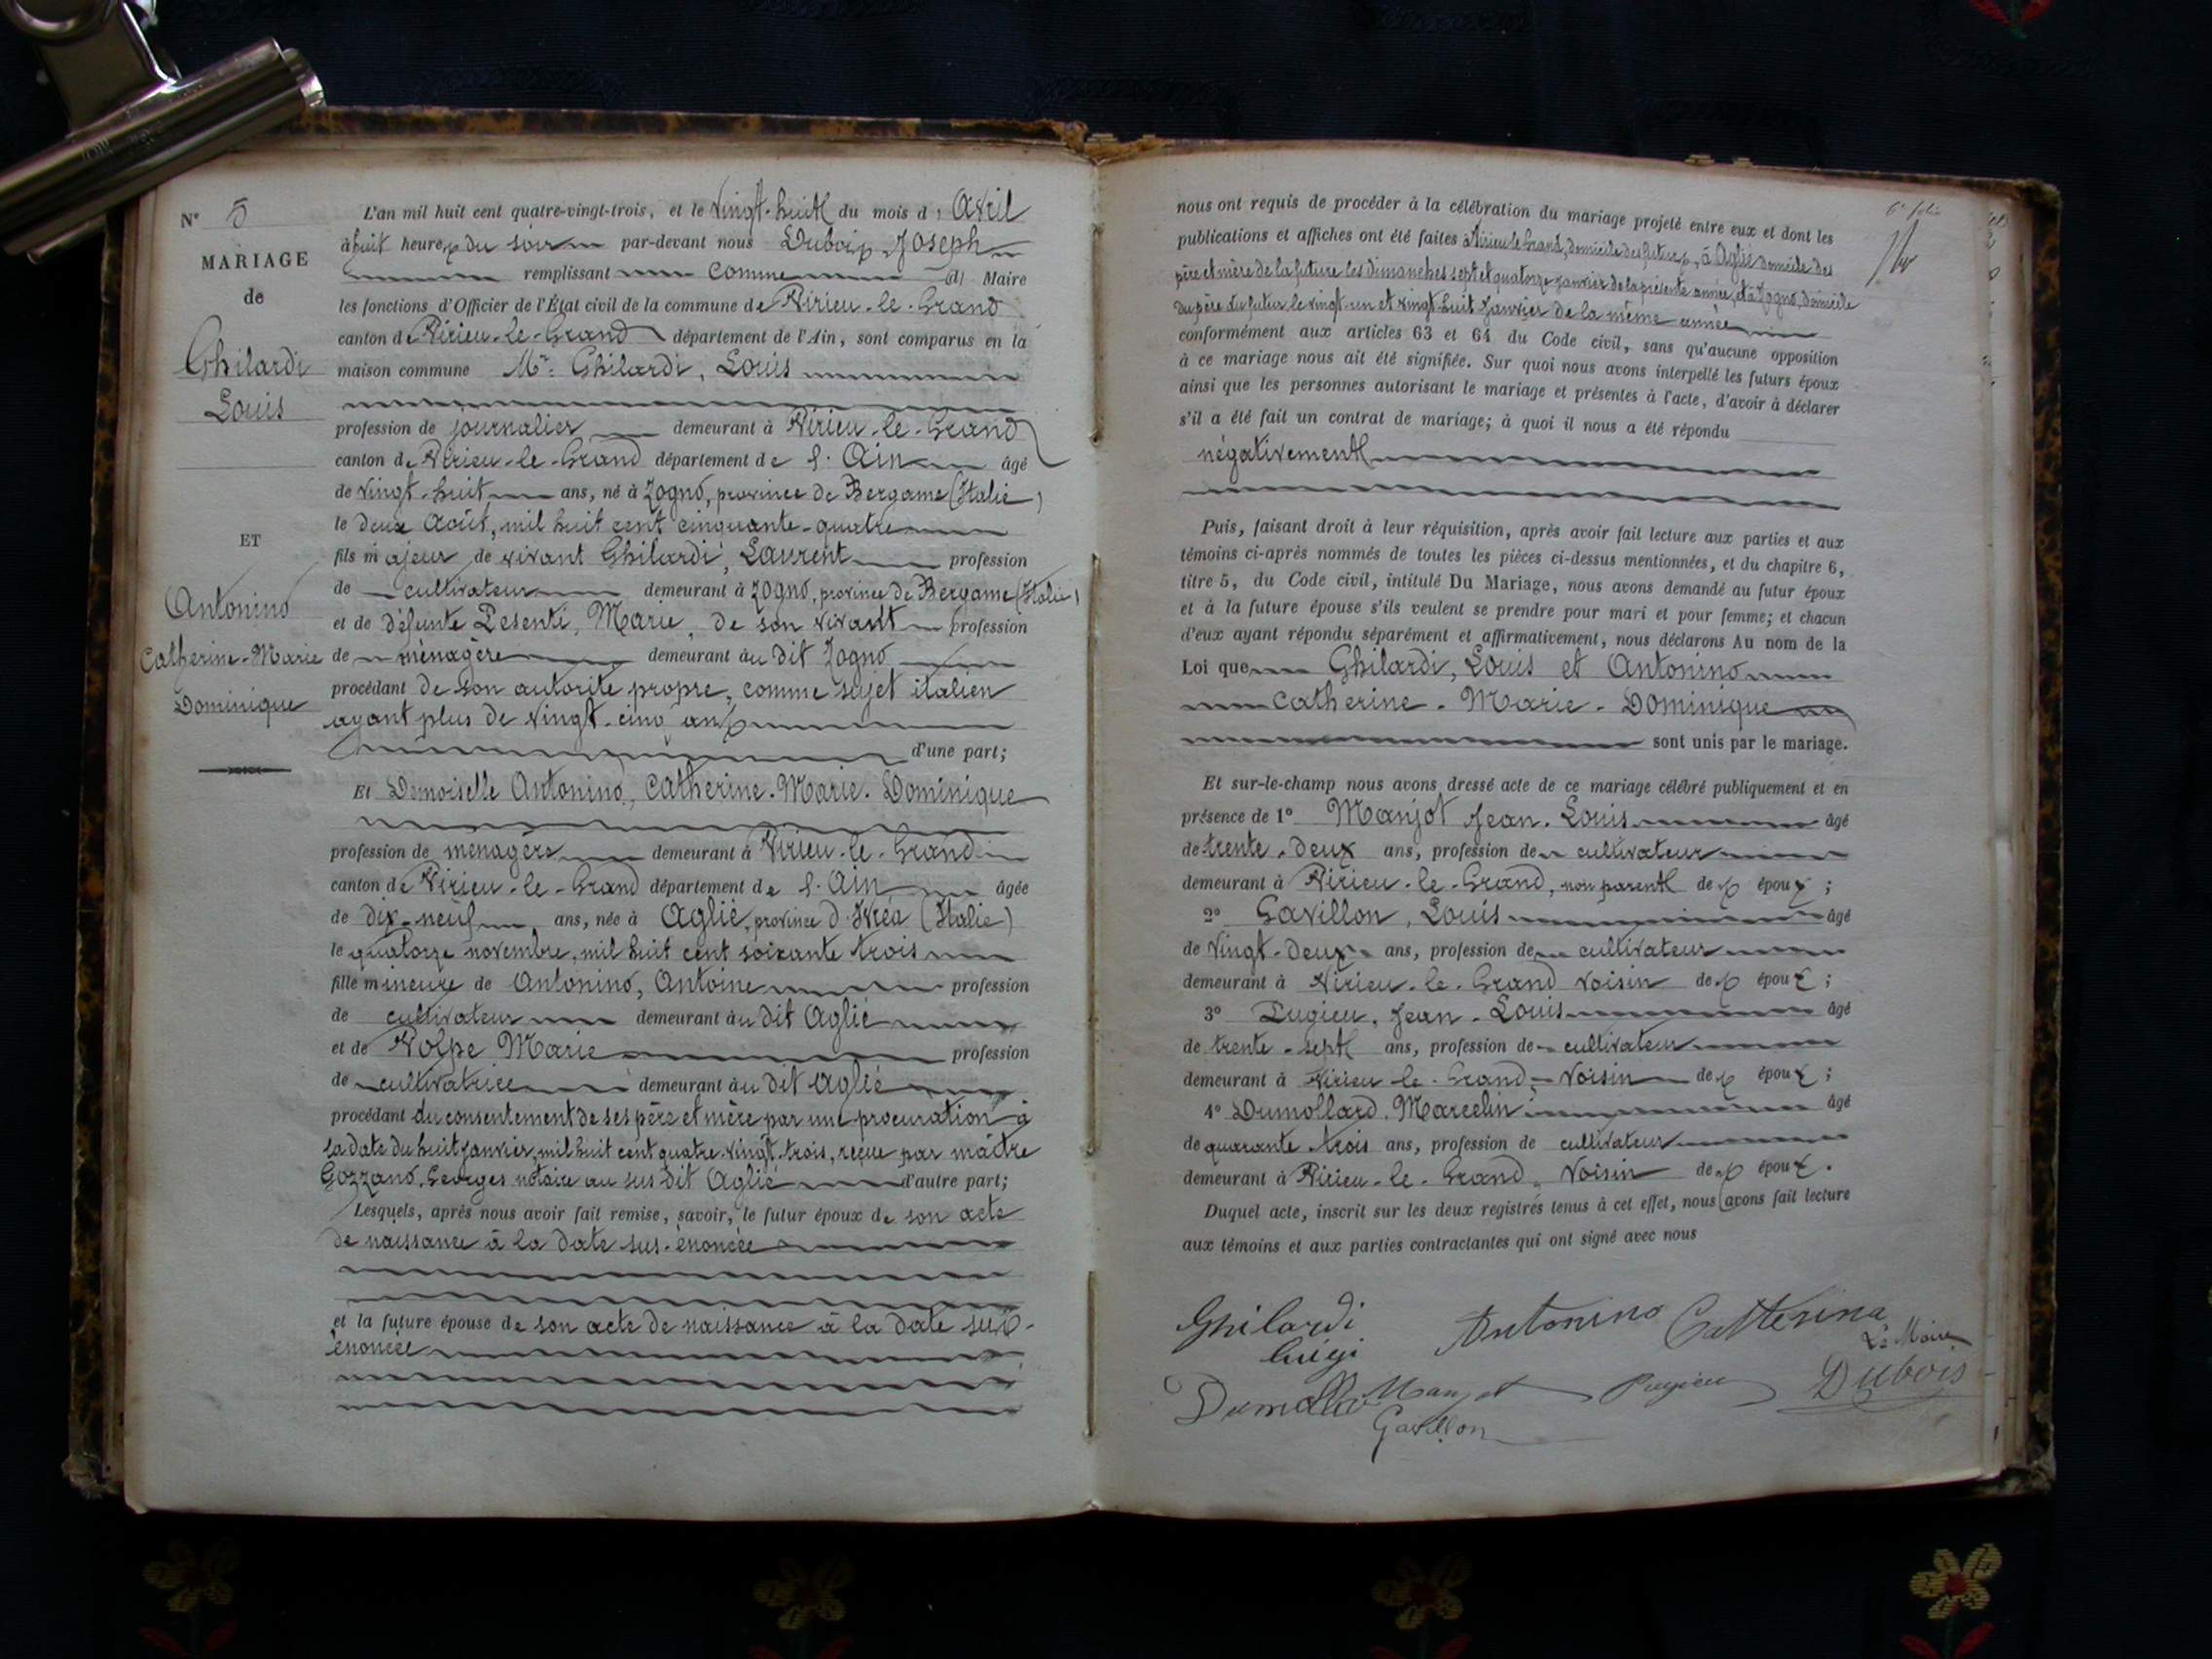 N° 5
MARIAGE
de
Ghilardi
Louis
ET
Antonino
Catherine-Marie
Dominique
L'an mil huit cent quatre-vingt-trois, et le vingt-huit du mois d' Avril
à huit heures du soir par-devant nous Dubois, Joseph
remplissant comme Maire
les fonctions d'Officier de l'État civil de la commune de Virieu-le-Grand
canton de Virieu-le-Grand département de l'Ain, sont comparus en la
maison commune Mr. Ghilardi, Louis
profession de journalier demeurant à Virieu-le-Grand
canton de Virieu-le-Grand département de l'Ain âgé
de vingt-huit ans, né à Zogno, province de Bergame (Italie)
le deux Août, mil huit cent cinquante-quatre
fils majeur de vivant Ghilardi, Laurent profession
de cultivateur demeurant à Zogno, province de Bergame (Italie)
et de défunte Pesenti, Marie, de son vivant profession
de ménagère demeurant au dit Zogno
procédant de son autorité propre, comme sujet italien
ayant plus de vingt-cinq ans
d'une part;
Et Demoiselle Antonino, Catherine-Marie-Dominique
profession de ménagère demeurant à Virieu-le-Grand
canton de Virieu-le-Grand département de l'Ain âgée
de dix-neuf ans, née à Aglié, province d'Ivréa (Italie)
le quatorze novembre, mil huit cent soixante trois
fille mineure de Antonino, Antoine profession
de cultivateur demeurant au dit Aglié
et de Volpe Marie profession
de cultivatrice demeurant au dit Aglié
procédant du consentement de ses père et mère par une procuration à
la date du huit janvier, mil huit cent quatre vingt trois, reçue par maître
Gozzano, Georges notaire au sus dit Aglié d'autre part;
Lesquels, après nous avoir fait remise, savoir, le futur époux de son acte
de naissance à la date sus-énoncée
et la future épouse de son acte de naissance à la date sus-
énoncée
nous ont requis de procéder à la célébration du mariage projeté entre eux et dont les
publications et affiches ont été faites à Virieu le Grand, domicile des futurs, à Aglié domicile des
père et mère de la future les dimanches sept et quatorze janvier de la présente année, et à Zogno, domicile
du père du futur le vingt-un et vingt-huit Janvier de la même année
conformément aux articles 63 et 64 du Code civil, sans qu'aucune opposition
à ce mariage nous ait été signifiée. Sur quoi nous avons interpellé les futurs époux
ainsi que les personnes autorisant le mariage et présentes à l'acte, d'avoir à déclarer
s'il a été fait un contrat de mariage; à quoi il nous a été répondu
négativement
Puis, faisant droit à leur réquisition, après avoir fait lecture aux parties et aux
témoins ci-après nommés de toutes les pièces ci-dessus mentionnées, et du chapitre 6,
titre 5, du Code civil, intitulé Du Mariage, nous avons demandé au futur époux
et à la future épouse s'ils veulent se prendre pour mari et pour femme; et chacun
d'eux ayant répondu séparément et affirmativement, nous déclarons Au nom de la
Loi que Ghilardi, Louis et Antonino
Catherine-Marie-Dominique
sont unis par le mariage.
Et sur-le-champ nous avons dressé acte de ce mariage célébré publiquement et en
présence de 1° Manjot Jean-Louis âgé
de trente-deux ans, profession de cultivateur
demeurant à Virieu-le-Grand, non parent des époux;
2° Gavillon, Louis âgé
de vingt-deux ans, profession de cultivateur
demeurant à Virieu-le-Grand voisin des époux;
3° Pugieu, Jean-Louis âgé
de trente-sept ans, profession de cultivateur
demeurant à Virieu-le-Grand, voisin des époux;
4° Dumollard, Marcelin âgé
de quarante trois ans, profession de cultivateur
demeurant à Virieu-le-Grand, voisin des époux.
Duquel acte, inscrit sur les deux registres tenus à cet effet, nous avons fait lecture
aux témoins et aux parties contractantes qui ont signé avec nous
Ghilardi
luigi
Antonino Catterina
Le Maire
Manjot
Pugieu
Dubois
Gavillon